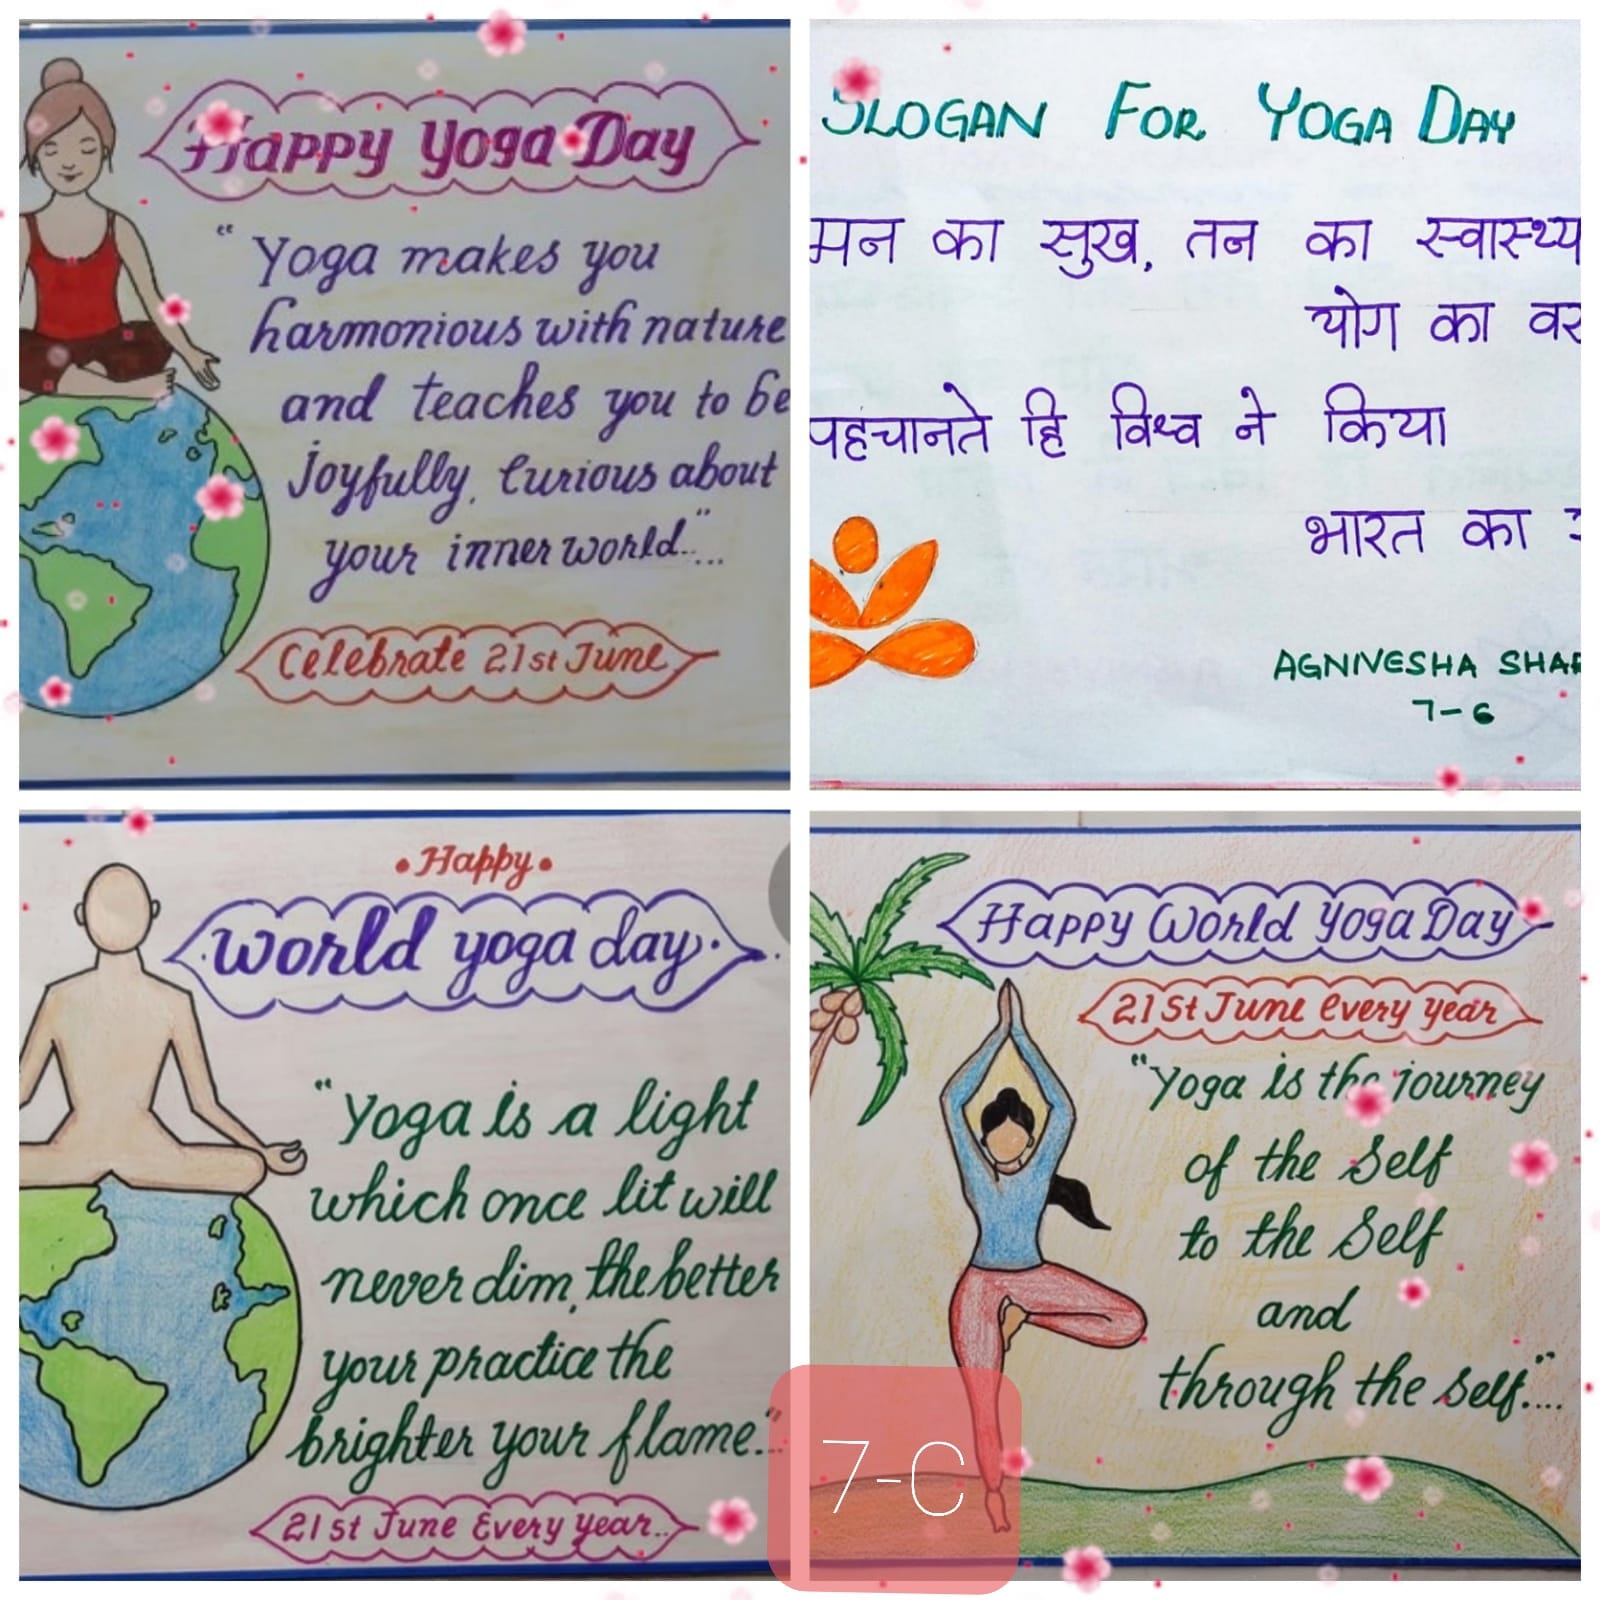 Happy Yoga Day
"Yoga makes you
harmonious with nature
and teaches you to be
joyfully, curious about
your inner world..."
Celebrate 21st June
SLOGAN FOR YOGA DAY
मन का सुख, तन का स्वास्थ्य
योग का
पहचानते हि विश्व ने किया
भारत का
AGNIVESHA
7-6
Happy
World yoga day.
"Yoga is a light
which once lit will
never dim, the better
your practice the
brighter your flame."..
21st June Every year..
Happy World Yoga Day
21st June every year
"Yoga is the journey
of the self
to the self
and
through the self."...
7-C